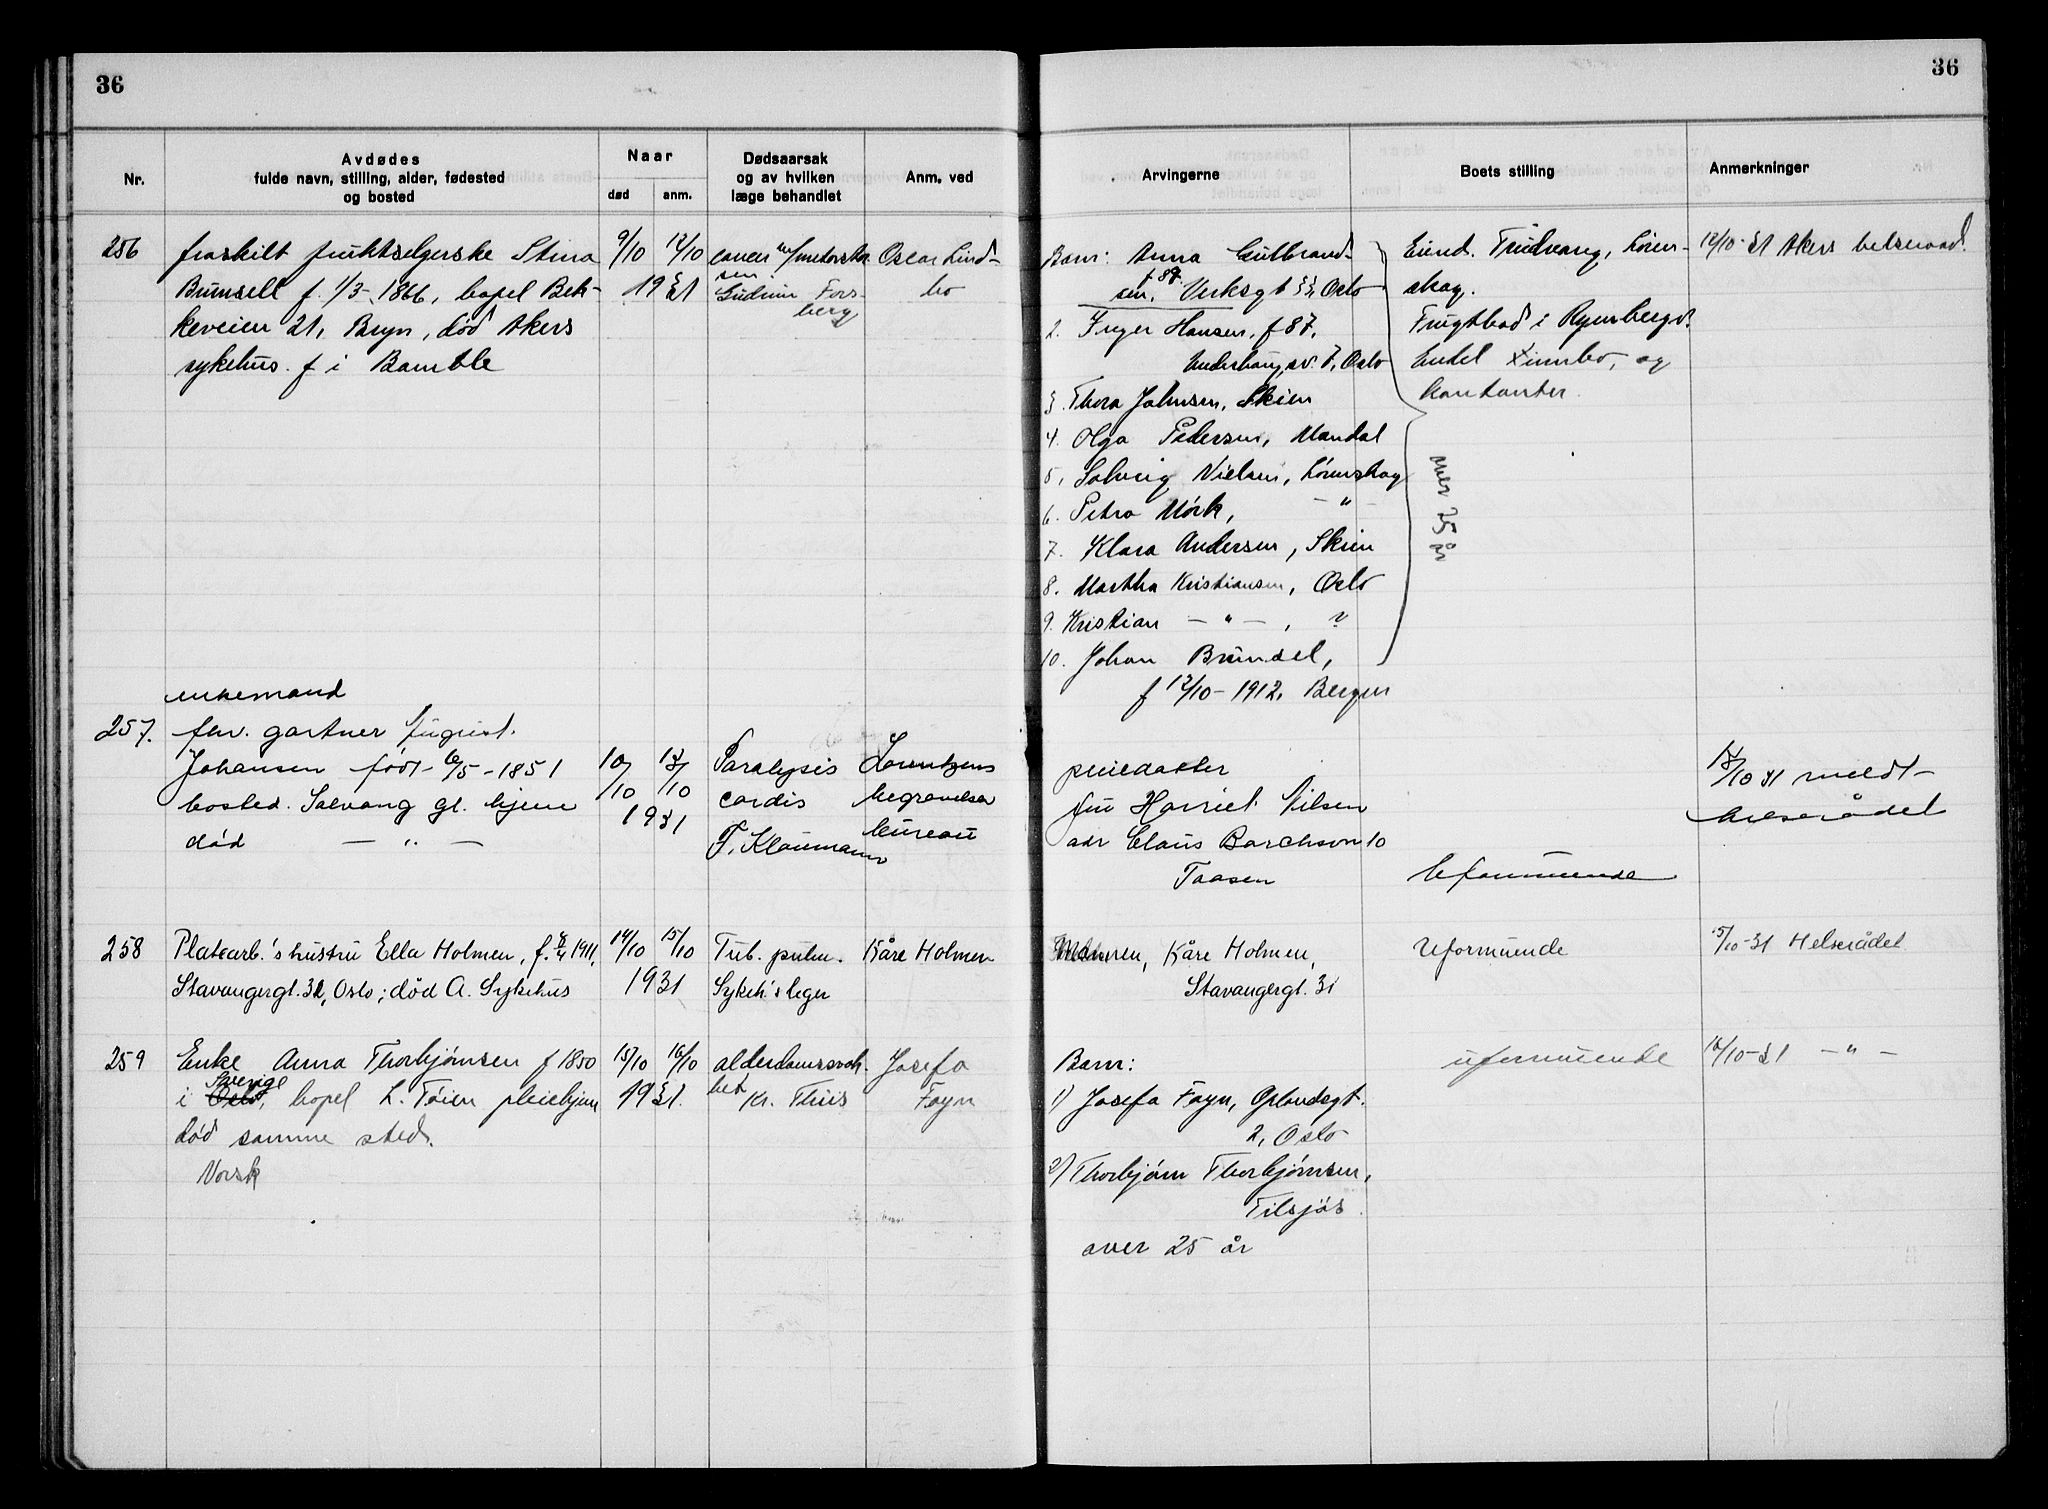 36
36
Nr.
Avdødes
fulde navn, stilling, alder, fødested
og bosted
Naar
død
anm.
Dødsaarsak
og av hvilken
læge behandlet
Anm. ved
Arvingerne
Boets stilling
Anmerkninger
256
fraskilt fruktselgerske Stina
Brunsell f. 1/3-1866, bopel Bek-
keveien 21, Bryn, død Akers
sykehus. f i Bamble
9/10 12/10
1931
cancer
Gudrun Fors-
berg
Oscar Lind-
bo
Barn: Anna Gulbrand-
sen, f 89 Verksgt 33, Oslo
2. Inger Hansen, f 87,
7, Oslo
3. Thora Johnsen, Skien
4. Olga Pedersen, Mandal
5, Solveig Nielsen, Lörenskog
6. Petra Mörk, - " -
7. Klara Andersen, Skien
8. Martha Kristiansen, Oslo
9. Kristian - " - , ?
10. Johan Brunsel,
f 12/10-1912, Bergen
over 25 år
Eiend. Trudvang, Lören-
skog.
Frugtbod i Ryenbergv.
Endel innbo, og
kontanter.
12/10-31 Akers helseraad.
257.
enkemand
fhv. gartner August
Johansen født 6/5-1851
bosted. Solvang gl. hjem
død - " -
10/10 13/10
1931
Paralysis
cordis
F. Klaumann
Lorentzens
begravelses
bureau
pleiedatter
fru Harriet Nilsen
adr Claus Borchson 10
Taasen
Uformuende
13/10 31 meldt
helserådet
258
Platearb.'s hustru Ella Holmen, f. 8/4 1911,
Stavangergt. 31, Oslo; død A. Sykehus
14/10 15/10
1931
Tub. pulm.
Sykeh's leger
Kåre Holmen
Mannen, Kåre Holmen,
Stavangergt. 31
Uformuende
15/10-31 Helserådet
259
Enke Anna Thorbjörnsen f 1850
i Sverige Oslo, bopel L. Töien pleiehjem
död samme sted.
Norsk
15/10 16/10
1931.
alderdomssvak-
het Kr. Thiis
Josefa
Foyn
Barn:
1) Josefa Foyn, Oplandsgt.
2, Oslo
2) Thorbjörn Thorbjörnsen,
Eilsjös
over 25 år
uformuende
16/10-31 - " -